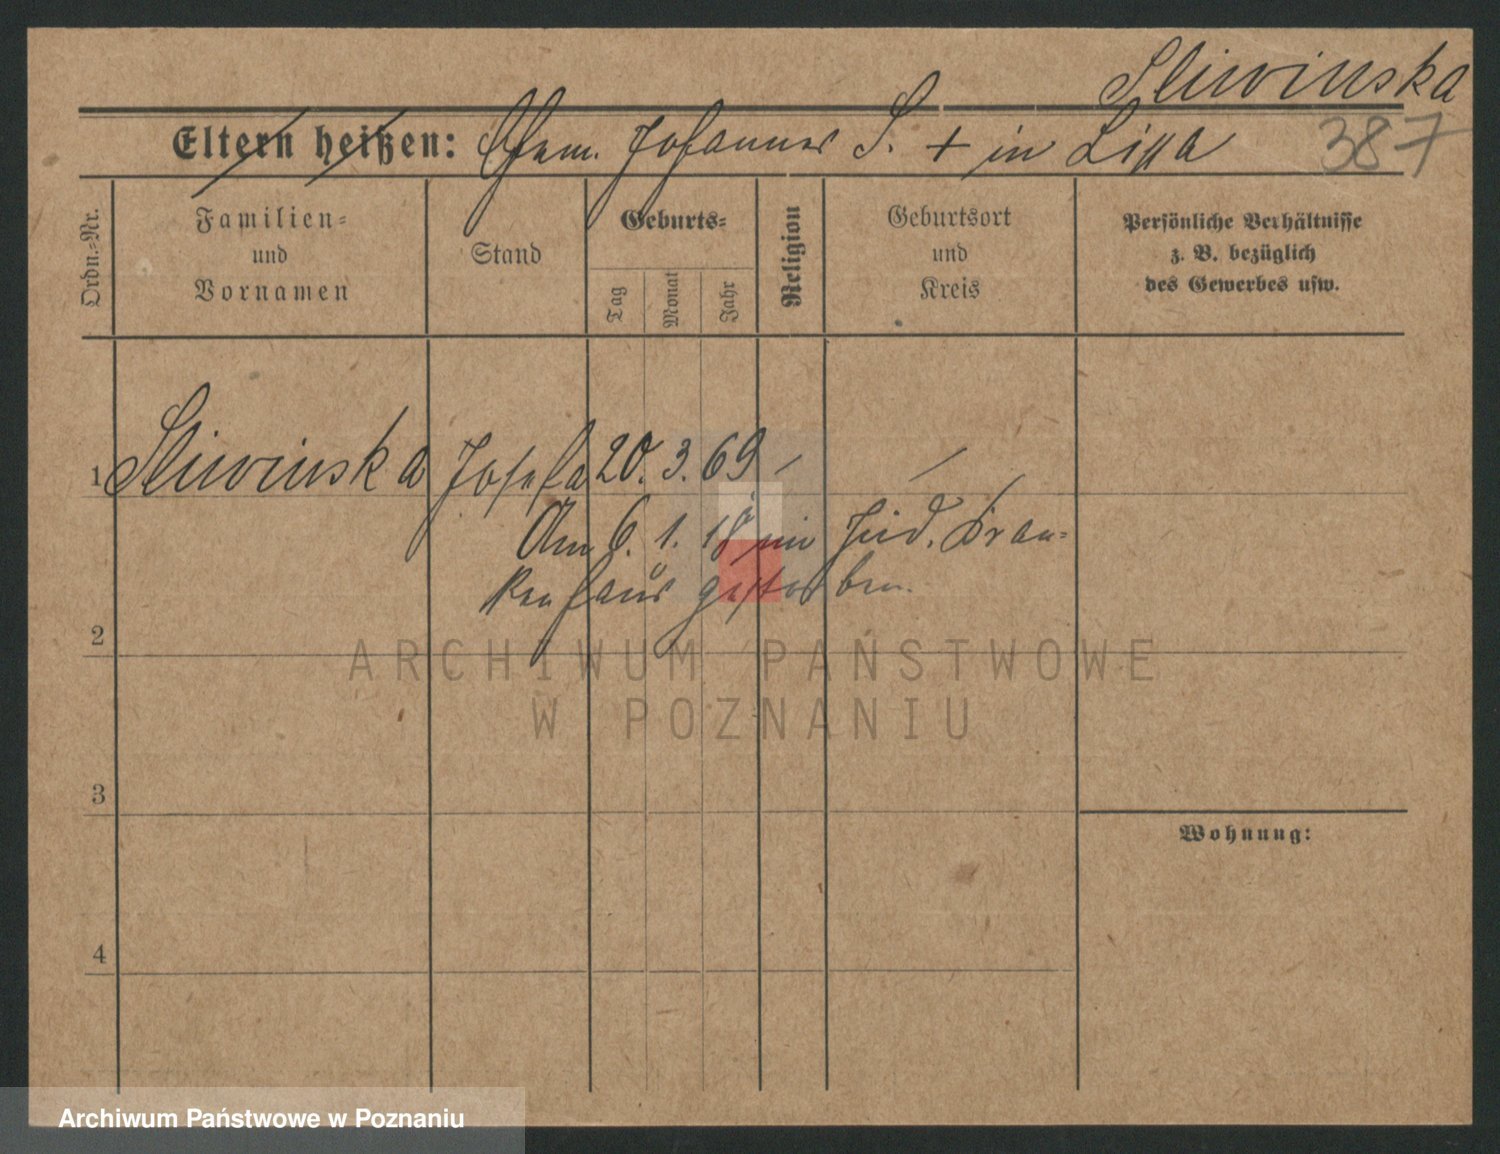 Sliwinska
Eltern heißen: Ehem. Johannes S. + in Lissa 387
Ordn.-Nr.
Familien-
und
Vornamen
Stand
Geburts-
Tag
Monat
Jahr
Religion
Geburtsort
und
Kreis
Persönliche Verhältnisse
z. B. bezüglich
des Gewerbes usw.
1 Sliwinska Josefa 20. 3. 69 / /
Am 6. 1. 18 im Jüd. Kran-
kenhaus gestorben.
2
3
Wohnung:
4
ARCHIWUM PAŃSTWOWE
W POZNANIU
Archiwum Państwowe w Poznaniu